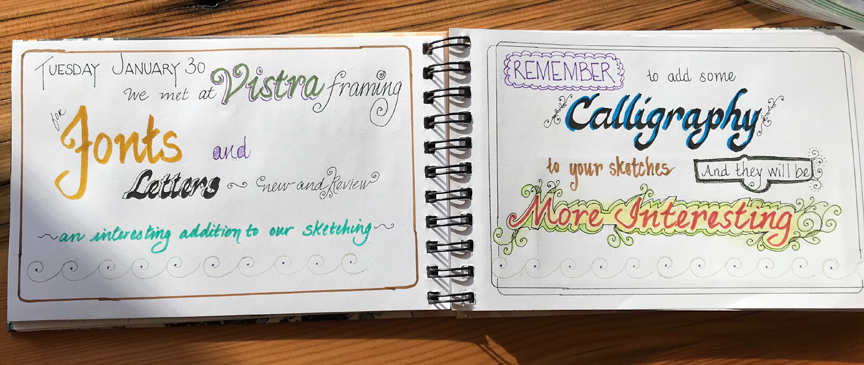 TUESDAY JANUARY 30
We met at Vistra framing
for
Fonts and
Letters ~ new and Review
~ an interesting addition to our sketching ~
REMEMBER to add some
Calligraphy
to your sketches And they will be
More Interesting